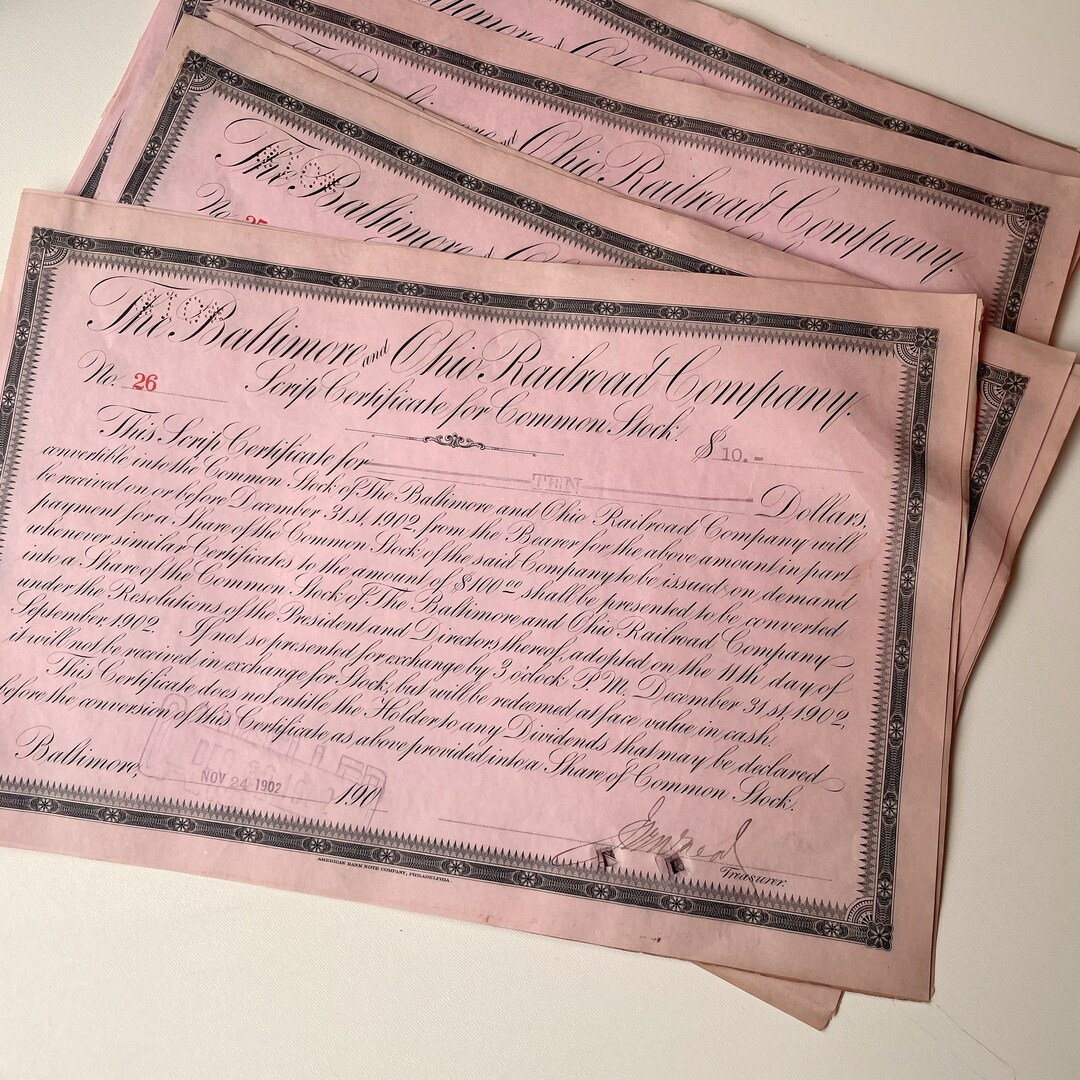 Baltimore
Ohio Railroad Company.
The Baltimore and
No. 25
The Baltimore and Ohio Railroad Company.
No. 26
Scrip Certificate for Common Stock.
$ 10.-
This Scrip Certificate for TEN Dollars,
convertible into the Common Stock of The Baltimore and Ohio Railroad Company will
be received on or before December 31st, 1902, from the Bearer for the above amount in part
payment for a Share of the Common Stock of the said Company to be issued on demand
whenever similar Certificates to the amount of $100.00 shall be presented to be converted
into a Share of the Common Stock of The Baltimore and Ohio Railroad Company
under the Resolutions of the President and Directors thereof, adopted on the 11th day of
September, 1902. If not so presented for exchange by 3 o'clock P.M. December 31st, 1902,
it will not be received in exchange for Stock, but will be redeemed at face value in cash.
This Certificate does not entitle the Holder to any Dividends that may be declared
before the conversion of this Certificate as above provided into a Share of Common Stock.
CANCELLED
NOV 24 1902
Baltimore, 190
Treasurer.
AMERICAN BANK NOTE COMPANY, PHILADELPHIA.